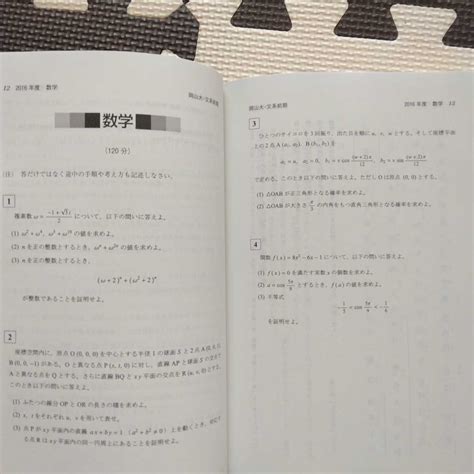 12 2016年度 数学
数学
(120分)
(注) 答だけではなく途中の手順や考え方も記述しなさい．
1
複素数 ω= (-1+√3 i)/2 について，以下の問いに答えよ．
(1) ω²+ω⁴, の値を求めよ．
(2) n を正の整数とするとき，の値を求めよ．
(3) n を正の整数とするとき，
(ω+2)ⁿ+(ω²+2)ⁿ
が整数であることを証明せよ．
2
座標空間内に，原点 O(0, 0, 0) を中心とする半径1の球面 S と2点
B(0, 0, -1) がある．O と異なる点 P(s, t, 0) に対し，直線 AP と球面 S の交点で
A と異なる点を Q とする．さらに直線 BQ と xy 平面の交点を R(u, v, 0) とする．
このとき以下の問いに答えよ．
(1) ふたつの線分 OP と OR の長さの積を求めよ．
(2) s, t をそれぞれ u, v を用いて表せ．
(3) 点 P が xy 平面内の直線 ax+by=1 (a²+b²≠0) 上を動くとき，対応す
る点 R は xy 平面内の同一円周上にあることを証明せよ．
岡山大-文系前期 2016年度 数学
3
ひとつのサイコロを3回振り，出た目を順に とする．そして座標平面
上の2点 A(a₁, a₂), B(b₁, b₂) を
で定める．このとき以下の問いに答えよ．ただし O は原点 (0, 0) とする．
(1) △OAB が正三角形となる確率を求めよ．
(2) △OAB が大きさ の内角をもつ直角三角形となる確率を求めよ．
4
関数 f(x)=8x³-6x-1 について，以下の問いに答えよ．
(1) f(x)=0 を満たす実数 x の個数を求めよ．
(2) a=cos 5π/9 とするとき，f(a) の値を求めよ．
(3) 不等式
-1/5 < cos 5π/9 < -1/6
を証明せよ．